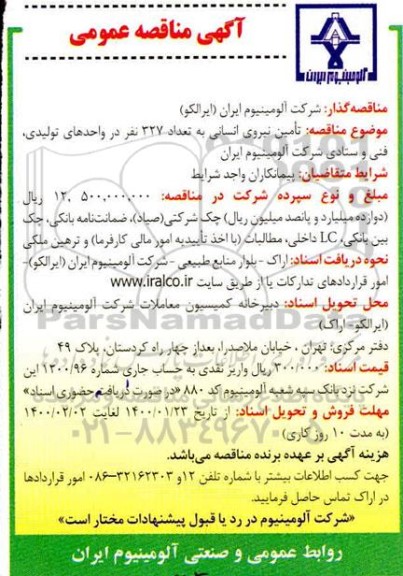 آگهی مناقصه عمومی
آلومینیوم ایران
مناقصه‌گذار: شرکت آلومینیوم ایران (ایرالکو)
موضوع مناقصه: تأمین نیروی انسانی به تعداد ۳۲۷ نفر در واحدهای تولیدی،
فنی و ستادی شرکت آلومینیوم ایران
شرایط متقاضیان: پیمانکاران واجد شرایط
مبلغ و نوع سپرده شرکت در مناقصه: ۱۲,۵۰۰,۰۰۰,۰۰۰ ریال
(دوازده میلیارد و پانصد میلیون ریال) چک شرکتی(صیاد)، ضمانت‌نامه بانکی، چک
بین بانکی، LC داخلی، مطالبات (با اخذ تأییدیه امور مالی کارفرما) و ترهین ملکی
نحوه دریافت اسناد: اراک - بلوار منابع طبیعی - شرکت آلومینیوم ایران (ایرالکو)-
امور قراردادهای تدارکات یا از طریق سایت www.iralco.ir
محل تحویل اسناد: دبیرخانه کمیسیون معاملات شرکت آلومینیوم ایران
(ایرالکو- اراک)
دفتر مرکزی: تهران، خیابان ملاصدرا، بعداز چهار راه کردستان، پلاک ۴۹
قیمت اسناد: ۳۰۰/۰۰۰ ریال واریز نقدی به حساب جاری شماره ۱۲۰۰/۹۶ این
شرکت نزد بانک سپه شعبه آلومینیوم کد ۸۸۰ «در صورت دریافت حضوری اسناد»
مهلت فروش و تحویل اسناد: از تاریخ ۱۴۰۰/۰۱/۲۳ لغایت ۱۴۰۰/۰۲/۰۲
(به مدت ۱۰ روز کاری)
هزینه آگهی بر عهده برنده مناقصه می‌باشد.
جهت کسب اطلاعات بیشتر با شماره تلفن ۱۲و ۳۲۱۶۲۳۰۳-۰۸۶ امور قراردادها
در اراک تماس حاصل فرمایید.
«شرکت آلومینیوم در رد یا قبول پیشنهادات مختار است»
روابط عمومی و صنعتی آلومینیوم ایران
ParsNamadData
۰۲۱-۸۸۳۴۹۶۷۰